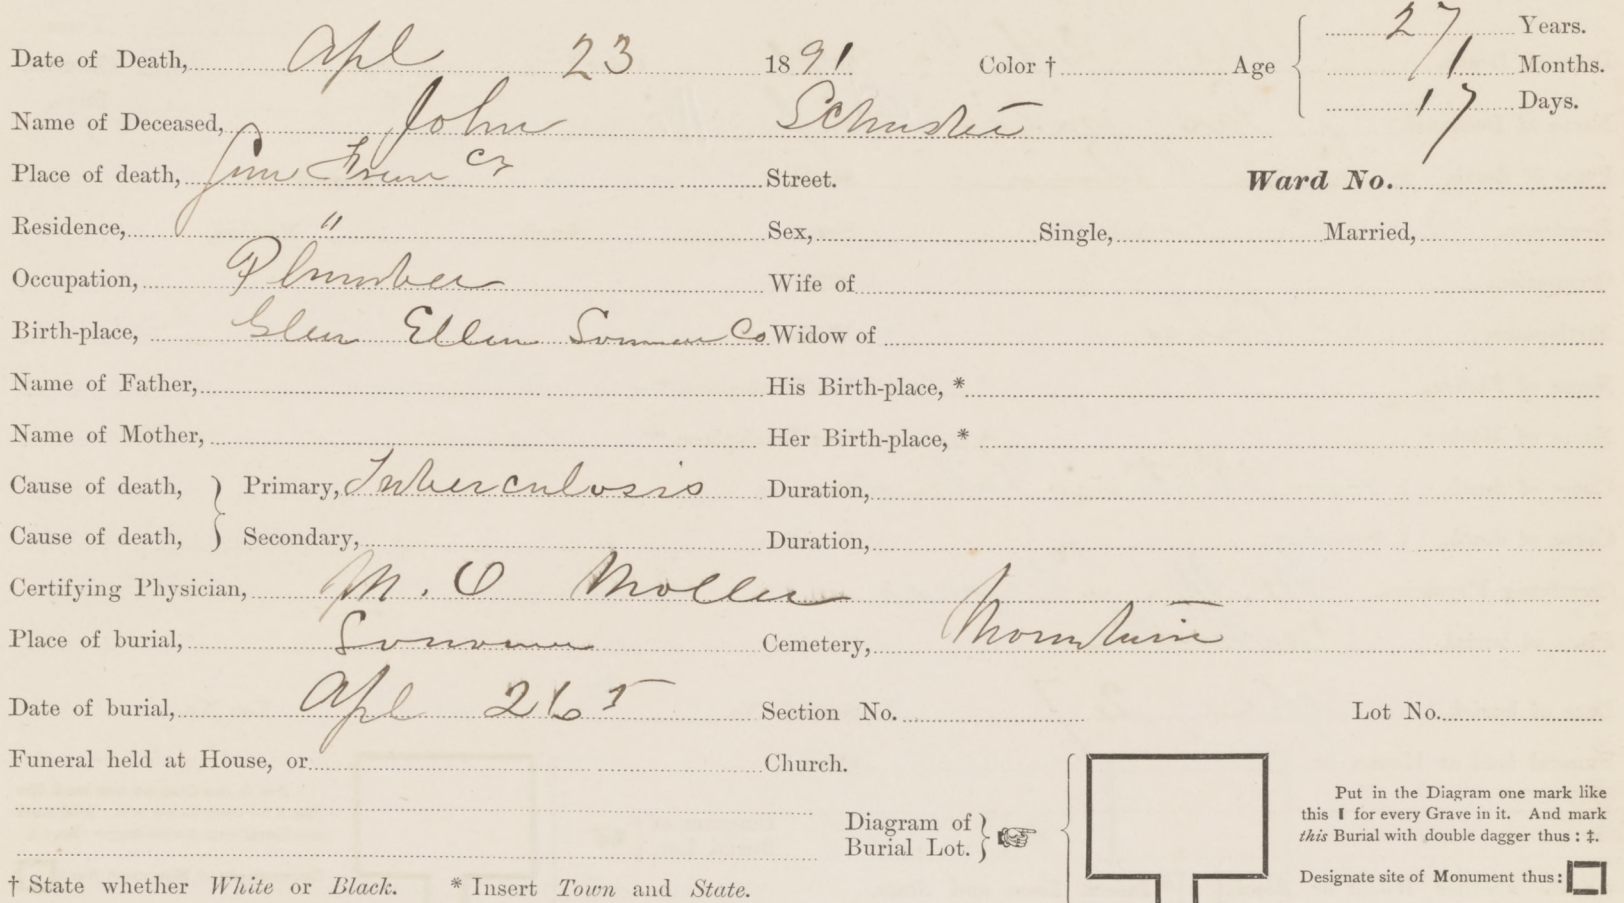 27 Years.
Date of Death, Apl 23 1891 Color † Age 1 Months.
17 Days.
Name of Deceased, John Schuster
Place of death, Street. Ward No.
Residence, " Sex, Single, Married,
Occupation, Plumber Wife of
Birth-place, Glen Ellen Sonoma Co Widow of
Name of Father, His Birth-place, *
Name of Mother, Her Birth-place, *
Cause of death, } Primary, Tuberculosis Duration,
Cause of death, } Secondary, Duration,
Certifying Physician, M. O Moller
Place of burial, Sonoma Cemetery, Mountain
Date of burial, Apl 26 Section No. Lot No.
Funeral held at House, or Church.
Diagram of
Burial Lot. }
Put in the Diagram one mark like
this I for every Grave in it. And mark
this Burial with double dagger thus: ‡.
Designate site of Monument thus:
† State whether White or Black. * Insert Town and State.